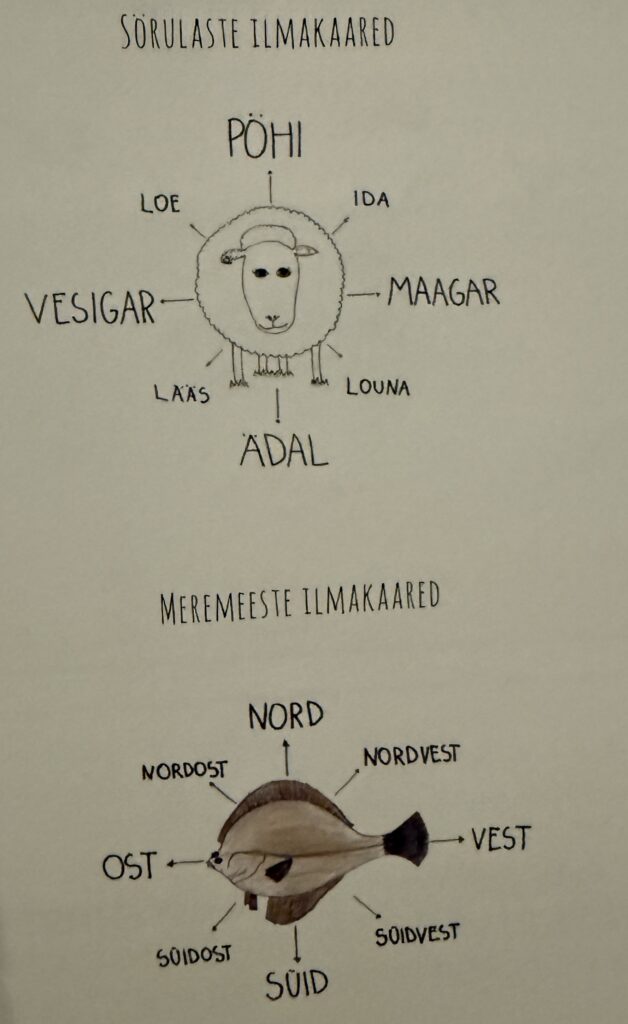 SÖRULASTE ILMAKAARED
PÖHI
LOE
IDA
VESIGAR
MAAGAR
LÄÄS
LOUNA
ÄDAL
MEREMEESTE ILMAKAARED
NORD
NORDOST
NORDVEST
OST
VEST
SÜIDOST
SÜIDVEST
SÜID